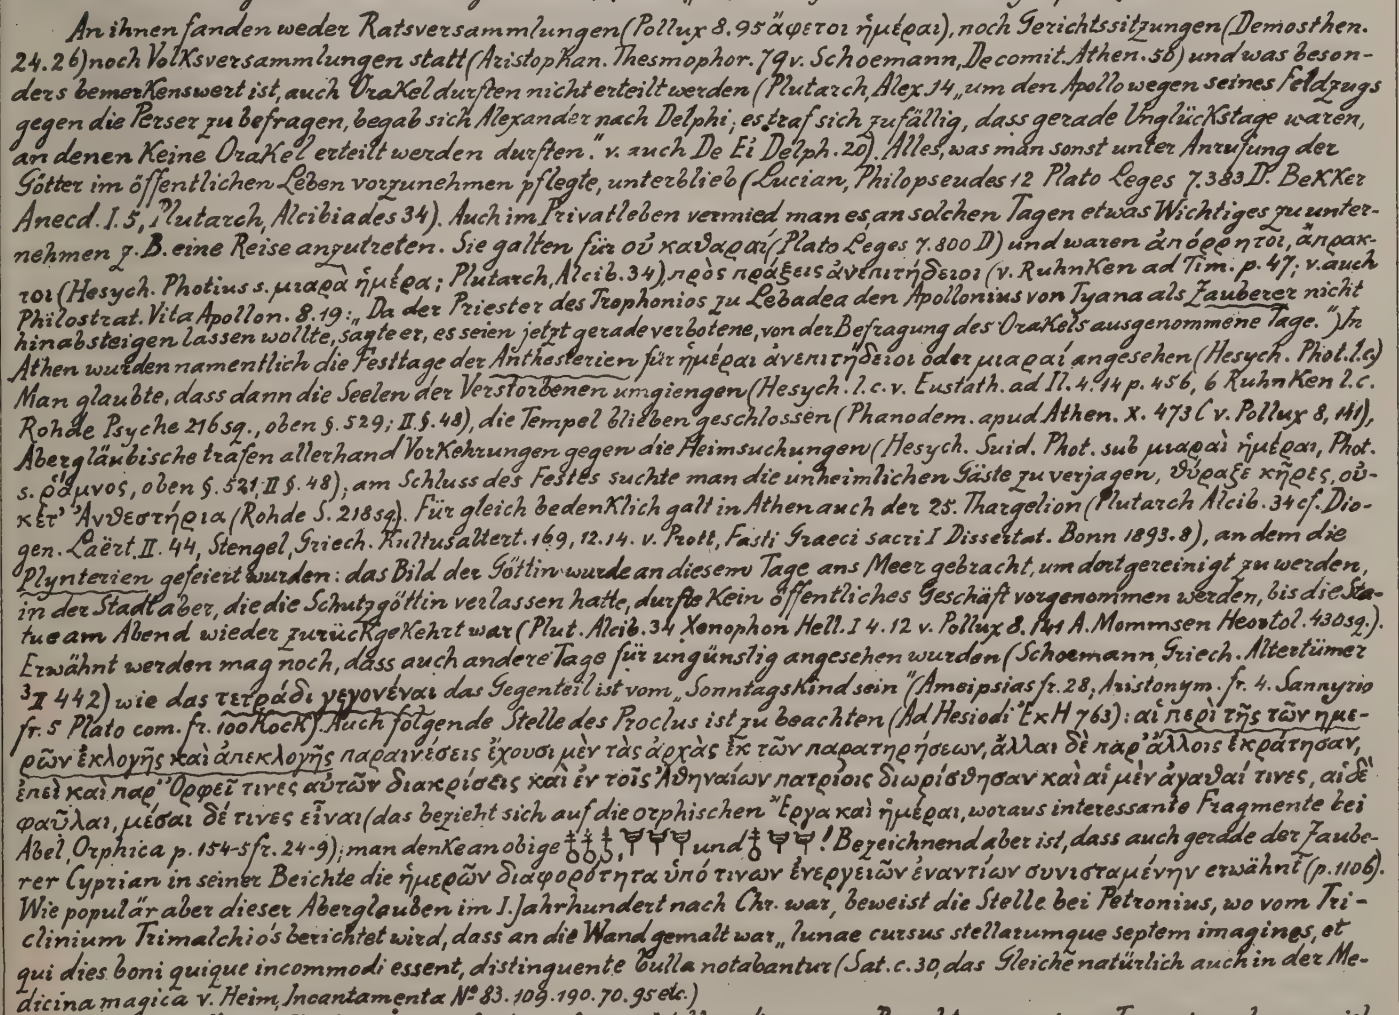 An ihnen fanden weder Ratsversammlungen (Pollux 8.95 ἄφετοι ἡμέραι), noch Gerichtssitzungen (Demosthen.
24.26) noch Volksversammlungen statt (Aristophan. Thesmophor. 79 v. Schoemann, De comit. Athen. 50) und was beson-
ders bemerkenswert ist, auch Orakel durften nicht erteilt werden (Plutarch, Alex. 14 „um den Apollo wegen seines Feldzugs
gegen die Perser zu befragen, begab sich Alexander nach Delphi; es traf sich zufällig, dass gerade Unglückstage waren,
an denen keine Orakel erteilt werden durften." v. auch De Ei Delph. 20). Alles, was man sonst unter Anrufung der
Götter im öffentlichen Leben vorzunehmen pflegte, unterblieb (Lucian, Philopseudes 12 Plato Leges 7.383 D. Bekker
Anecd. I. 5, Plutarch, Alcibiades 34). Auch im Privatleben vermied man es, an solchen Tagen etwas Wichtiges zu unter-
nehmen z. B. eine Reise anzutreten. Sie galten für οὐ καθαραί (Plato Leges 7. 800 D) und waren ἀπόρρητοι, ἄπρακ-
τοι (Hesych. Photius s. μιαρὰ ἡμέρα; Plutarch, Alcib. 34), πρὸς πράξεις ἀνεπιτήδειοι (v. Ruhnken ad Tim. p. 47; v. auch
Philostrat. Vita Apollon. 8.19: „Da der Priester des Trophonios zu Lebadea den Apollonius von Tyana als Zauberer nicht
hinabsteigen lassen wollte, sagte er, es seien jetzt gerade verbotene, von der Befragung des Orakels ausgenommene Tage.") In
Athen wurden namentlich die Festtage der Anthesterien für ἡμέραι ἀνεπιτήδειοι oder μιαραί angesehen (Hesych. Phot. l.c.)
Man glaubte, dass dann die Seelen der Verstorbenen umgiengen (Hesych. l.c. v. Eustath. ad Il. 4.14 p. 456, 6 Ruhnken l.c.
Rohde Psyche 216 sq., oben §. 529; II §. 48), die Tempel blieben geschlossen (Phanodem. apud Athen. X. 473 C v. Pollux 8, 141),
Abergläubische trafen allerhand Vorkehrungen gegen die Heimsuchungen (Hesych. Suid. Phot. sub μιαραὶ ἡμέραι, Phot.
s. ῥάμνος, oben §. 521, II §. 48); am Schluss des Festes suchte man die unheimlichen Gäste zu verjagen, θύραξε κῆρες, οὐ-
κέτ' Ἀνθεστήρια (Rohde S. 218 sq). Für gleich bedenklich galt in Athen auch der 25. Thargelion (Plutarch Alcib. 34 cf. Dio-
gen. Laërt. II. 44, Stengel, Griech. Kultusaltert. 169, 12.14. v. Prott, Fasti Graeci sacri I Dissertat. Bonn 1893. 8), an dem die
Plynterien gefeiert wurden: das Bild der Göttin wurde an diesem Tage ans Meer gebracht, um dort gereinigt zu werden,
in der Stadt aber, die die Schutzgöttin verlassen hatte, durfte kein öffentliches Geschäft vorgenommen werden, bis die Sta-
tue am Abend wieder zurückgekehrt war (Plut. Alcib. 34 Xenophon Hell. I 4. 12 v. Pollux 8. 141 A. Mommsen Heortol. 430 sq.).
Erwähnt werden mag noch, dass auch andere Tage für ungünstig angesehen wurden (Schoemann, Griech. Altertümer
³II 442) wie das τετράδι γεγονέναι das Gegenteil ist vom „Sonntagskind sein" (Ameipsias fr. 28, Aristonym. fr. 4. Sannyrio
fr. 5 Plato com. fr. 100 Kock). Auch folgende Stelle des Proclus ist zu beachten (Ad Hesiodi Ἔκ Η 763): αἱ περὶ τῆς τῶν ἡμε-
ρῶν ἐκλογῆς καὶ ἀπεκλογῆς παραινέσεις ἔχουσι μὲν τὰς ἀρχὰς ἐκ τῶν παρατηρήσεων, ἄλλαι δὲ παρ' ἄλλοις ἐκράτησαν,
ἐπεὶ καὶ παρ' Ὀρφεῖ τινες αὐτῶν διακρίσεις καὶ ἐν τοῖς Ἀθηναίων πατρίοις διωρίσθησαν καὶ αἱ μὲν ἀγαθαί τινες, αἱ δὲ
φαῦλαι, μέσαι δέ τινες εἶναι (das bezieht sich auf die orphischen Ἔργα καὶ ἡμέραι, woraus interessante Fragmente bei
Abel, Orphica p. 154-5 fr. 24-9); man denke an obige und ! Bezeichnend aber ist, dass auch gerade der Zaube-
rer Cyprian in seiner Beichte die ἡμερῶν διαφορότητα ὑπό τινων ἐνεργειῶν ἐναντίων συνισταμένην erwähnt (p. 1106).
Wie populär aber dieser Aberglauben im I. Jahrhundert nach Chr. war, beweist die Stelle bei Petronius, wo vom Tri-
clinium Trimalchio's berichtet wird, dass an die Wand gemalt war „lunae cursus stellarumque septem imagines, et
qui dies boni quique incommodi essent, distinguente bulla notabantur (Sat. c. 30, das Gleiche natürlich auch in der Me-
dicina magica v. Heim, Incantamenta Nº 83. 109. 190. 70. 95 etc.)